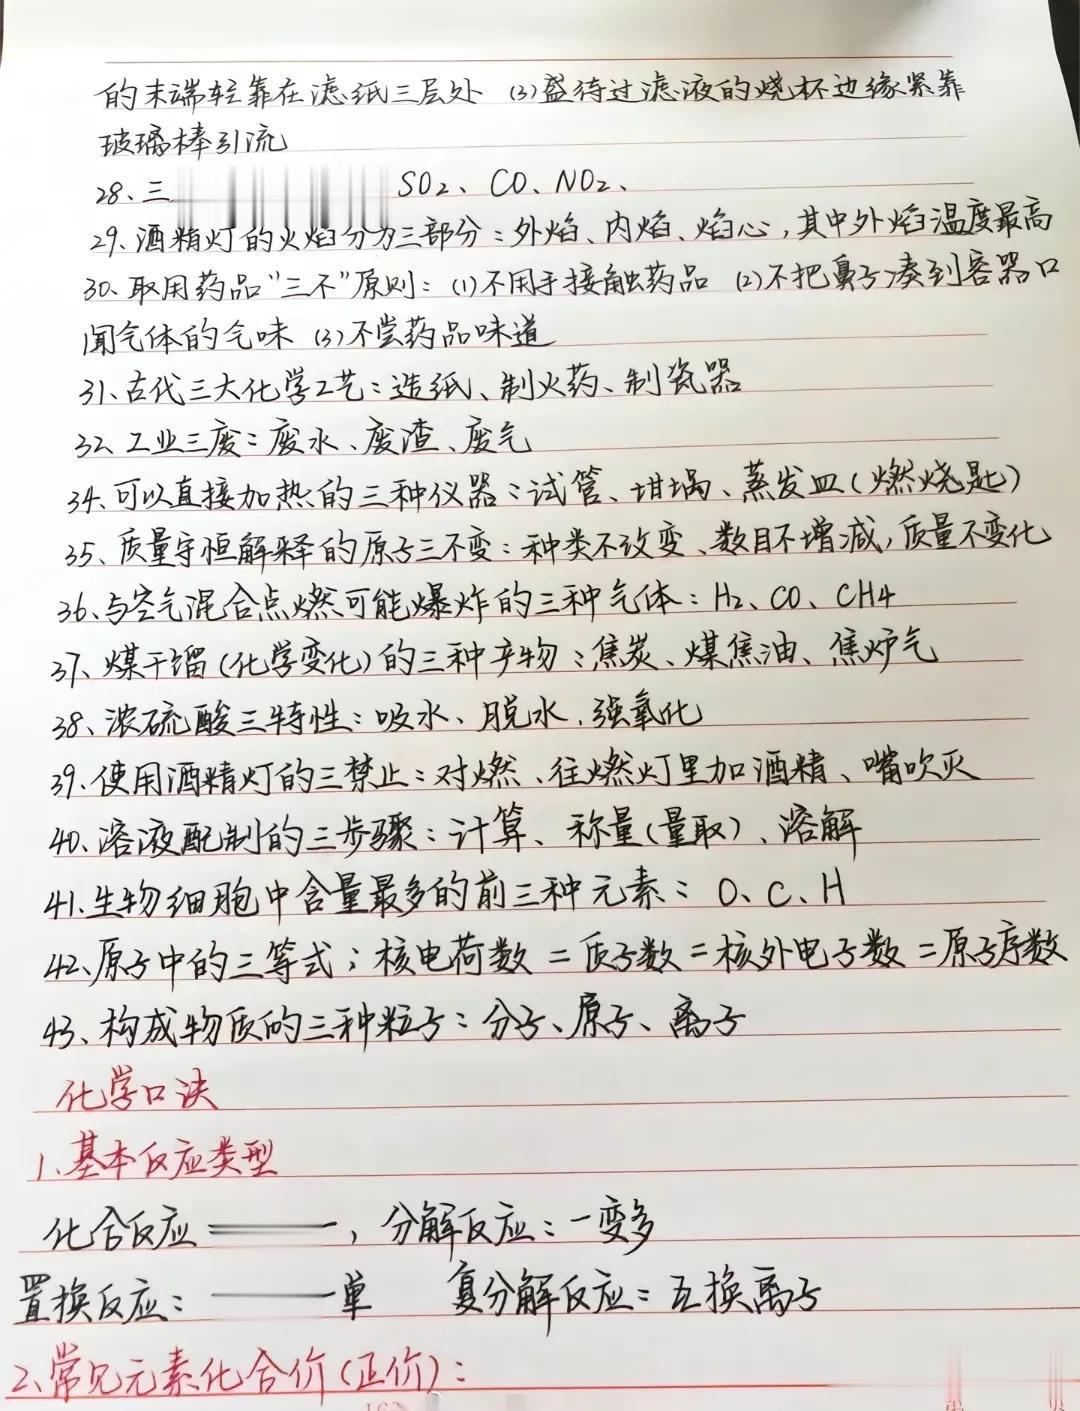 的末端轻靠在滤纸三层处 (3)盛待过滤液的烧杯边缘紧靠
玻璃棒引流
28、三 SO₂、CO、NO₂、
29、酒精灯的火焰分为三部分：外焰、内焰、焰心，其中外焰温度最高
30、取用药品“三不”原则：(1)不用手接触药品 (2)不把鼻子凑到容器口
闻气体的气味 (3)不尝药品味道
31、古代三大化学工艺：造纸、制火药、制瓷器
32、工业三废：废水、废渣、废气
34、可以直接加热的三种仪器：试管、坩埚、蒸发皿(燃烧匙)
35、质量守恒解释的原子三不变：种类不改变、数目不增减，质量不变化
36、与空气混合点燃可能爆炸的三种气体：H₂、CO、CH4
37、煤干馏(化学变化)的三种产物：焦炭、煤焦油、焦炉气
38、浓硫酸三特性：吸水、脱水、强氧化
39、使用酒精灯的三禁止：对燃、往燃灯里加酒精、嘴吹灭
40、溶液配制的三步骤：计算、称量(量取)、溶解
41、生物细胞中含量最多的前三种元素：O、C、H
42、原子中的三等式：核电荷数=质子数=核外电子数=原子序数
43、构成物质的三种粒子：分子、原子、离子
化学口诀
1、基本反应类型
化合反应 ，分解反应：一变多
置换反应： 单 复分解反应：互换离子
2、常见元素化合价(正价)：